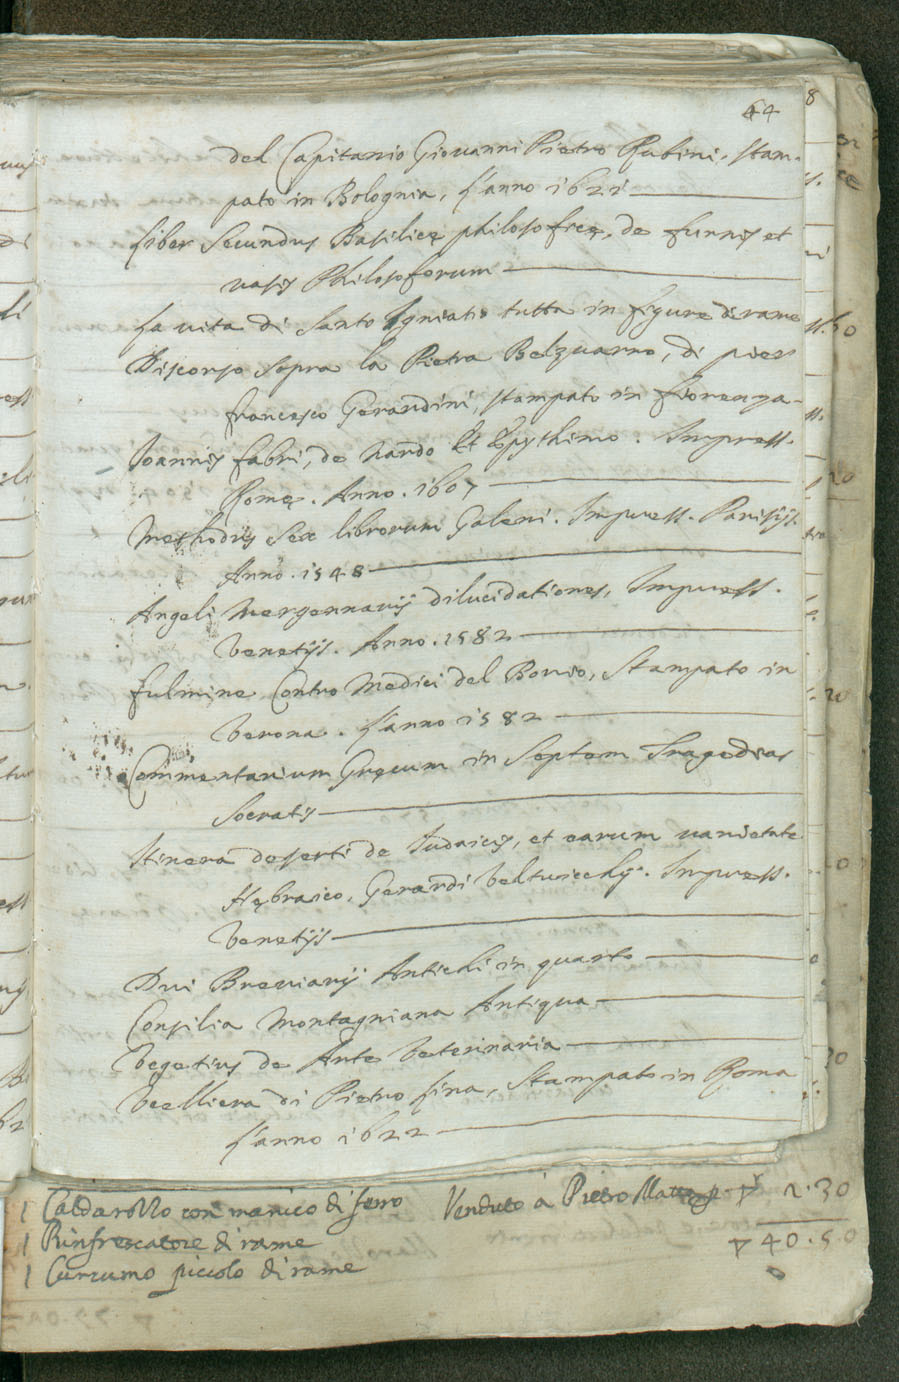 64
del Capitanio Giovanni Pietro Rubini, stam-
pato in Bolognia, l'anno 1621
Liber Secundus Basilicę philosoficę, de furnis et
vasis Philosoforum
La vita di Santo Igniatio tutta in figure di rame
Discorso sopra la Pietra Belzuarro, di pier
francesco Gerardini, stampato in fiorenza
Joannis fabri, de Nardo et Epythimo. Impress.
Romę. Anno. 1607
Methodus sex librorum Galeni. Impress. Parisijs.
Anno. 1548
Angeli Mergennarij dilucidationes, Impress.
Venetijs. Anno. 1582
fulmine Contro Medici del Bovio, stampato in
Verona. l'anno 1582
Commentarium Gręcum in septem Tragedias
Socratis
Itinera deserti de Judaicis, et earum varietate
Hębraico, Gerardi Veltuicchij. Impress.
Venetijs
Dui Breviarij Antichi in quarto
Consilia Montagniana Antiqua
Vegetius de Arte Veterinaria
Veelliera di Pietro Lina, stampato in Roma
l'anno 1622
1 Caldarozzo con manico di ferro Venduto à Pietro 2.30
1 Rinfrescatore di rame 40.50
1 Cucumo piccolo di rame